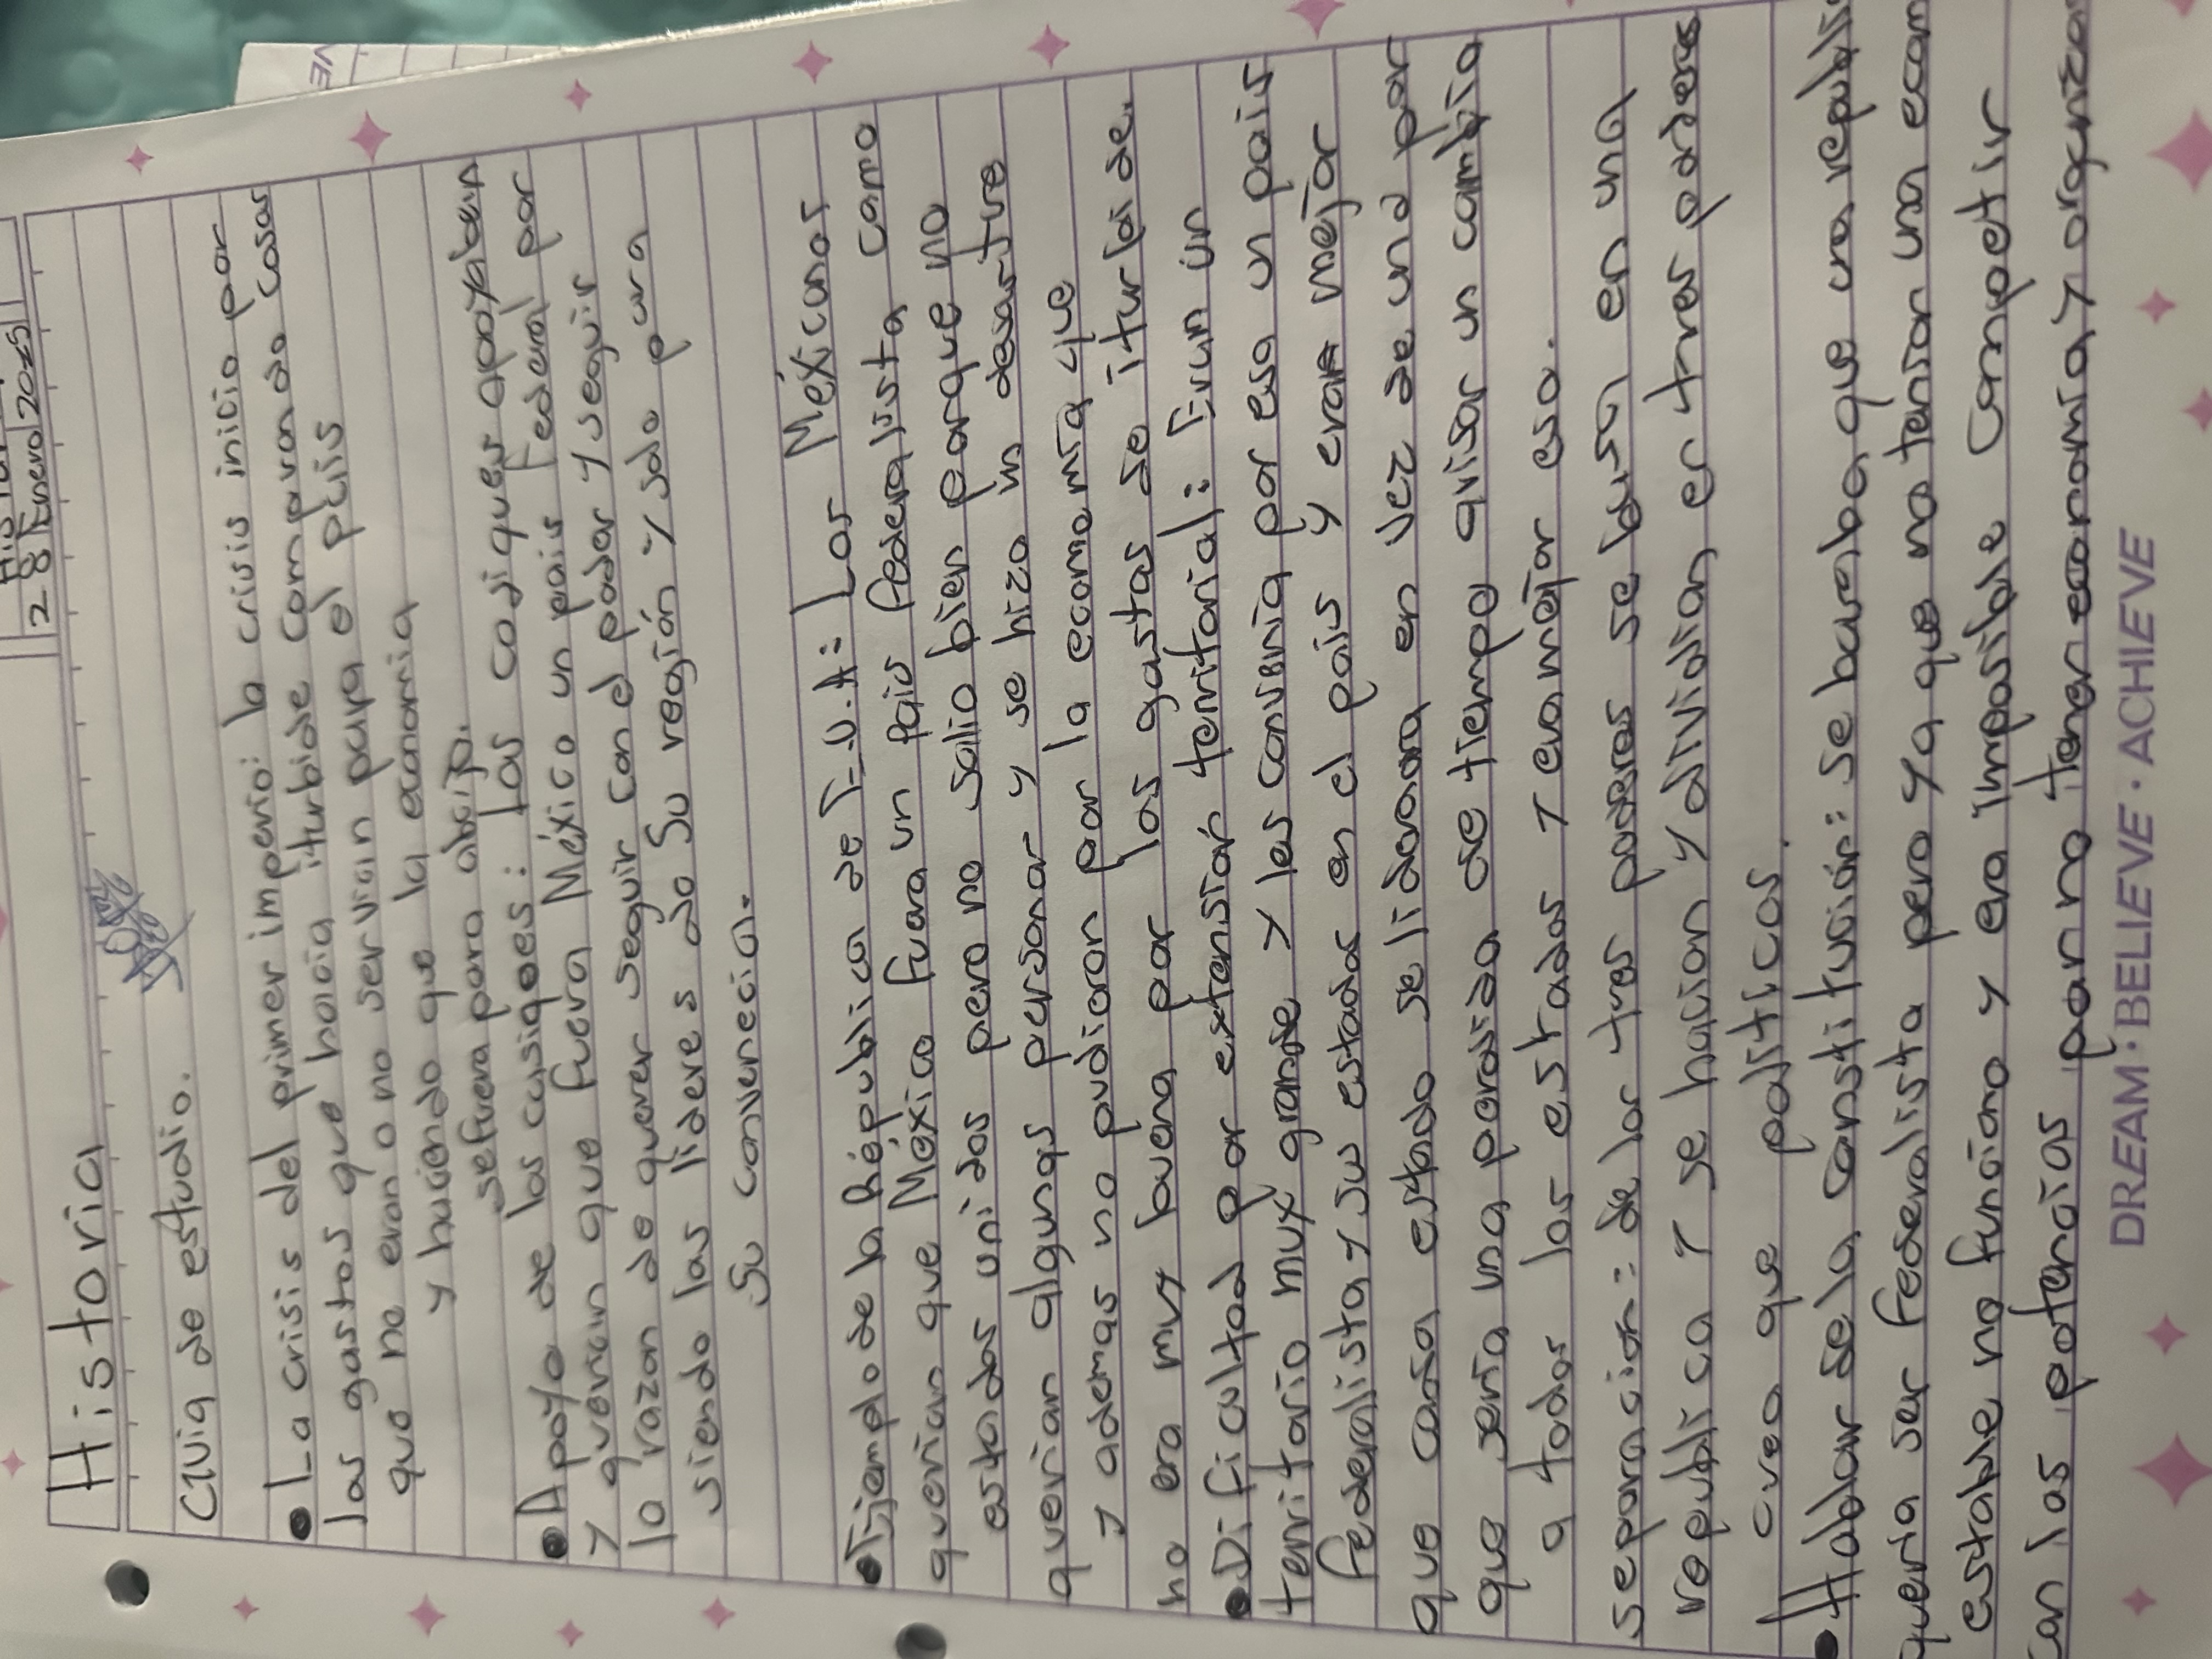 28 Enero 2025
Historia
Guia de estudio.
La crisis del primer imperio: la crisis inicio por
los gastos que hacia iturbide comparando cosas
que no eran o no servian para el país
y haciendo que la economia
se fuera para abajo.
Apoyo de los casiques: Los casiques apoyaban
y querian que fuera México un pais Federal por
lo razon de querer seguir con el poder y seguir
siendo las lideres de Su región y solo para
Su convenecia.
Ejemplo de la República de E.U.A: Los Méxicanos
querian que México fuera un pais federalista como
estados unidos pero no salio bien porque no
querian algunas personas y se hizo un desastre
y ademas no pudieron por la economía que
no era muy buena por los gastos de iturbide.
Dificultad por extensión territorial: Eran un
territorio muy grande y les convenia por eso un pais
federalista y sus estados en el pais y era mejor
que cada estado se liderara en vez de uno por
que sería una perdida de tiempo quisas un cambio
a todos los estados y era mejor eso.
separacion: de los tres poderes se basa en una
republica y se hacian y dividian en tres poderes
creo que politicos.
Hablar de la constitución: se basaba que una republi
queria ser federalista pero ya que no tenian una econom
estable no funciono y era imposible competir
con las potencias por no tener economía y organizac
DREAM · BELIEVE · ACHIEVE